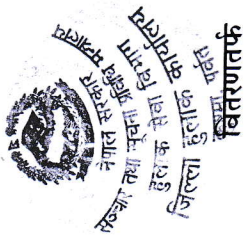 नेपाल सरकार
सञ्चार तथा सूचना प्रविधि मन्त्रालय
हुलाक सेवा विभाग
जिल्ला हुलाक कार्यालय
पर्वत
वितरणतर्फ